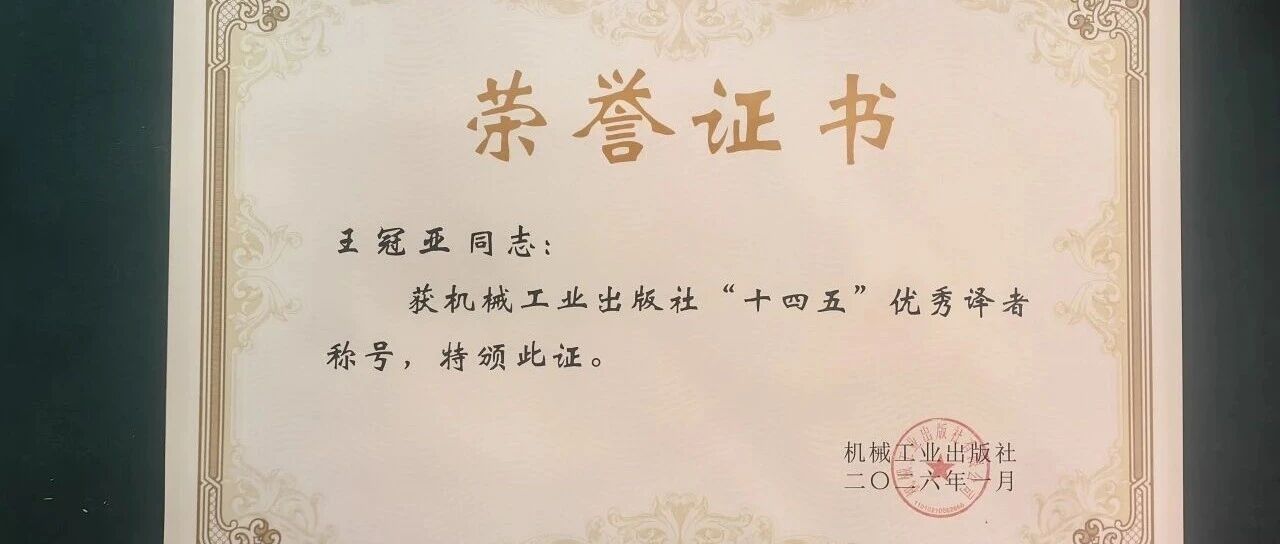 荣誉证书
王冠亚同志：
获机械工业出版社“十四五”优秀译者
称号，特颁此证。
机械工业出版社
二〇二六年一月